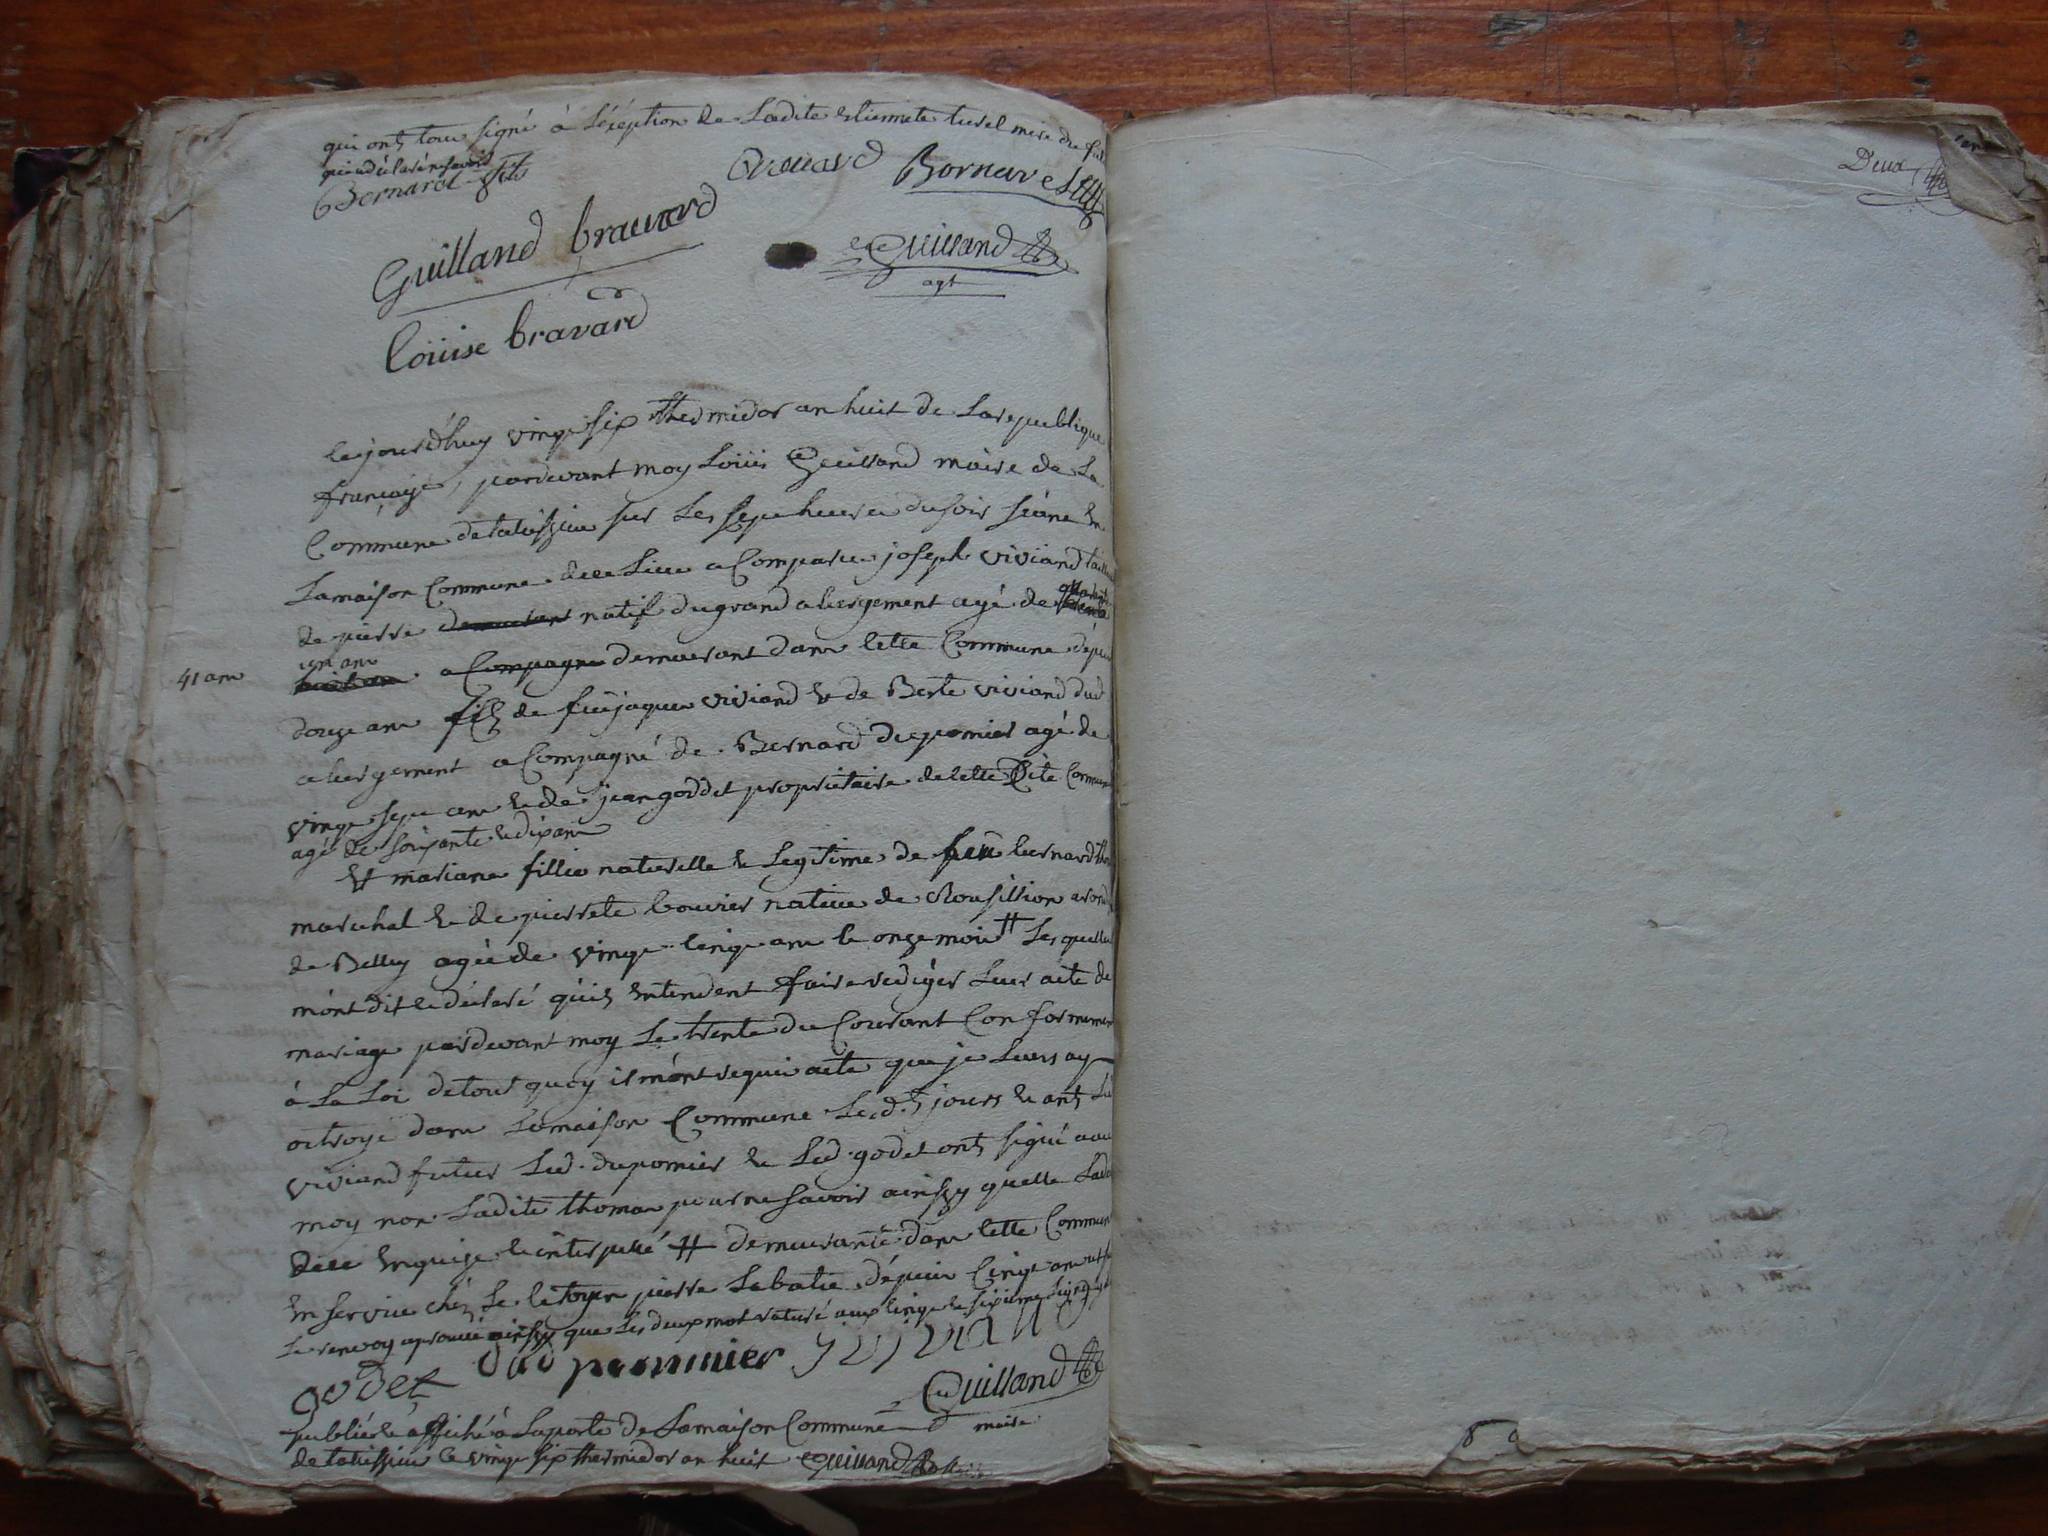 qui ont tous signé à l'éxéption de Ladite Etiennete turel mere du fut
qui a déclaré ne savoir
Bernard fils
Bravard Bornuer
Guilland bravard
Guilland
agt
loüise bravard
Cejourd'huy vingt six thermidor an huit de La republique
françaije, pardevant moy Loüis Guilland maire de La
Commune de talissieu sur Les sept heures du soir séàne En
Lamaison Commune dece Lieu a Comparu joseph viviand tailleur
de pierre demeurant natif du grand abergement agé de quarante
un an
41 ans
a Compagné demeurant dans Cette Commune dépuis
douze ans fils de feu jaques viviand & de Berte viviand dud
abergement a Compagné de Bernard dupomier agé de
vingt sept ans & de jean goddet propriétaire de Cette Dite Commune
agé de soixante & dix ans
Et mariane fillie naturelle & Legitime de feu bernard thomas
marechal & de pierrete bouvier native de Rousillion arond
de Belley agée de vingt Cinq ans & onze mois # Les quelles
m'ont dit & déclaré qu'ils Entendent faire rediger Leur acte de
mariage pardevant moy Le trente du Courant Conformement
à La Loi de tout quoy il m'ont requis acte que je Leurs ay
octroyé dans Lamaison Commune Lesd.ts jours & ans Led
viviand futur Led. dupomier & Led. godet ont signé avec
moy non Ladite thomas pour ne savoir ainsy quelle Lad
dece Enquize & interpellé # demeurante dans Cette Commune
En service chés Le Citoyen pierre Labatie dépuis Cinq ans
Le renvoy aprouvé ainsy que Les deux mot raturé aux Linge & sixieme Ligne
godet dud pommier viviand
Guilland
maire
publié & affiché à Laporte de Lamaison Commune
de talissieu Ce vingt six thermidor an huit Guilland maire
Deux